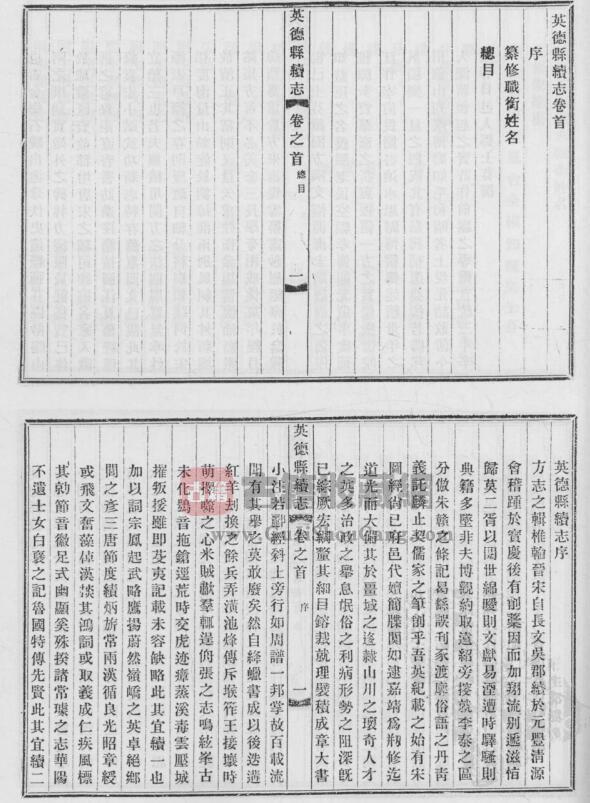 英德縣續志卷首
序
纂修職銜姓名
總目
英德縣續志
卷之首
總目
一
英德縣續志序
方志之輯椎輪晉宋自長文吳郡續於元豐清源
會稽踵於寶慶後有創藁因而加翔流別遞滋恉
歸莫二胥以閱世綿曖則文獻易湮遭時驛騷則
典籍多墜非夫博觀約取遠紹旁搜孰李泰之區
分倣朱贛之條記曷繇談刋豕渡廓俗語之丹青
義託麟止契儒家之筆創乎吾英紀載之始有宋
圖經尙已在邑代嬗簡牒闕如逮嘉靖爲剏修迄
道光而大備其於畺域之遂隸山川之瓌奇人才
之英多治政之舉息氓俗之利病形勢之阻深旣
已綜厥宏綱釐其細目鎔裁就理襞積成章大書
英德縣續志
卷之首
序
一
小注若酈經斜上旁行如周譜一邦掌故百載流
聞有其舉之莫敢廢矣然自絳蠟書成以後迭遘
紅羊刦換之餘兵弄潢池烽傳斥堠筰王接壤時
萌攫噬之心米賊獻羣輒逞侜張之志鳴絃峯古
未化鴞音拖鎗逕荒時交虎迹瘴蒸溪毒雲壓城
摧叛援雖卽芟夷記載未容缺略此其宜續一也
加以詞宗鳳起武略鷹揚蔚然嶺嶠之英卓絕鄉
閭之彥三唐節度績炳旂常兩漢循良光昭章綬
或飛文奮藻倬漢掞其鴻詞或取義成仁疾風標
其勁節音徽足式幽顯奚殊揆諸常璩之志華陽
不遺士女白褎之記魯國特傳先賢此其宜續二
古籍